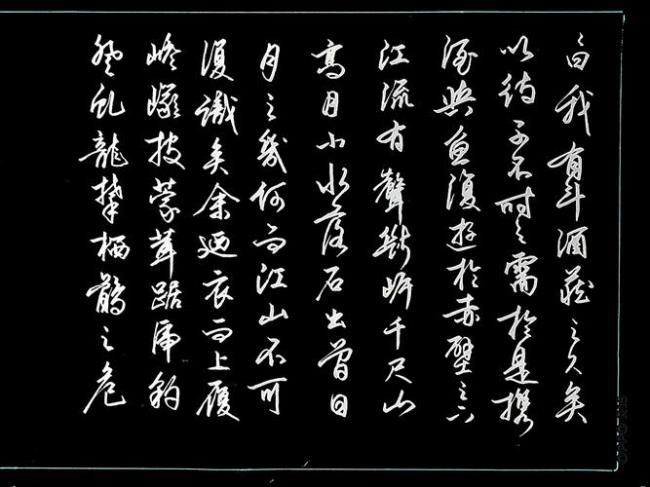 曰我有斗酒藏之久矣
以待子不時之需於是攜
酒與魚復遊於赤壁之下
江流有聲斷岸千尺山
高月小水落石出曾日
月之幾何而江山不可
復識矣余廼衣而上履
巉巖披蒙茸踞虎豹
登虬龍攀栖鶻之危